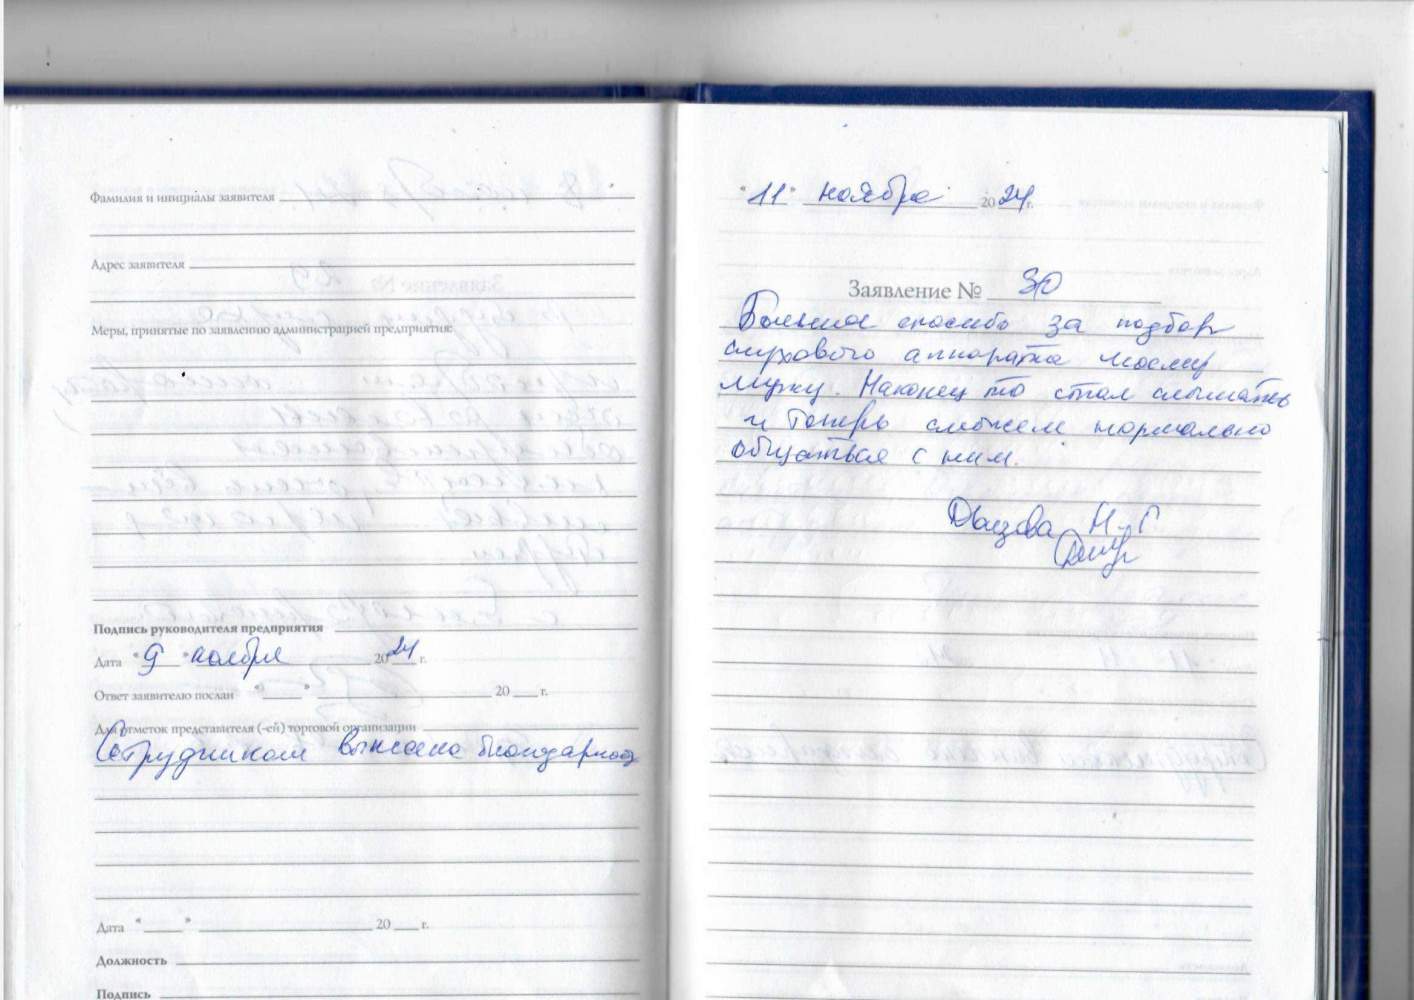 Фамилия и инициалы заявителя
Адрес заявителя
Меры, принятые по заявлению администрацией предприятия:
Подпись руководителя предприятия
Дата "9" ноября 2024 г.
Ответ заявителю послан " " 20 г.
Для отметок представителя (-ей) торговой организации
Сотрудником вынесена благодарность
Дата " " 20 г.
Должность
Подпись
"11" ноября 2024 г.
Заявление № 30
Большое спасибо за подбор
слухового аппарата моему
мужу. Наконец то стал слышать
и теперь сможем нормально
общаться с ним.
Н. Г.